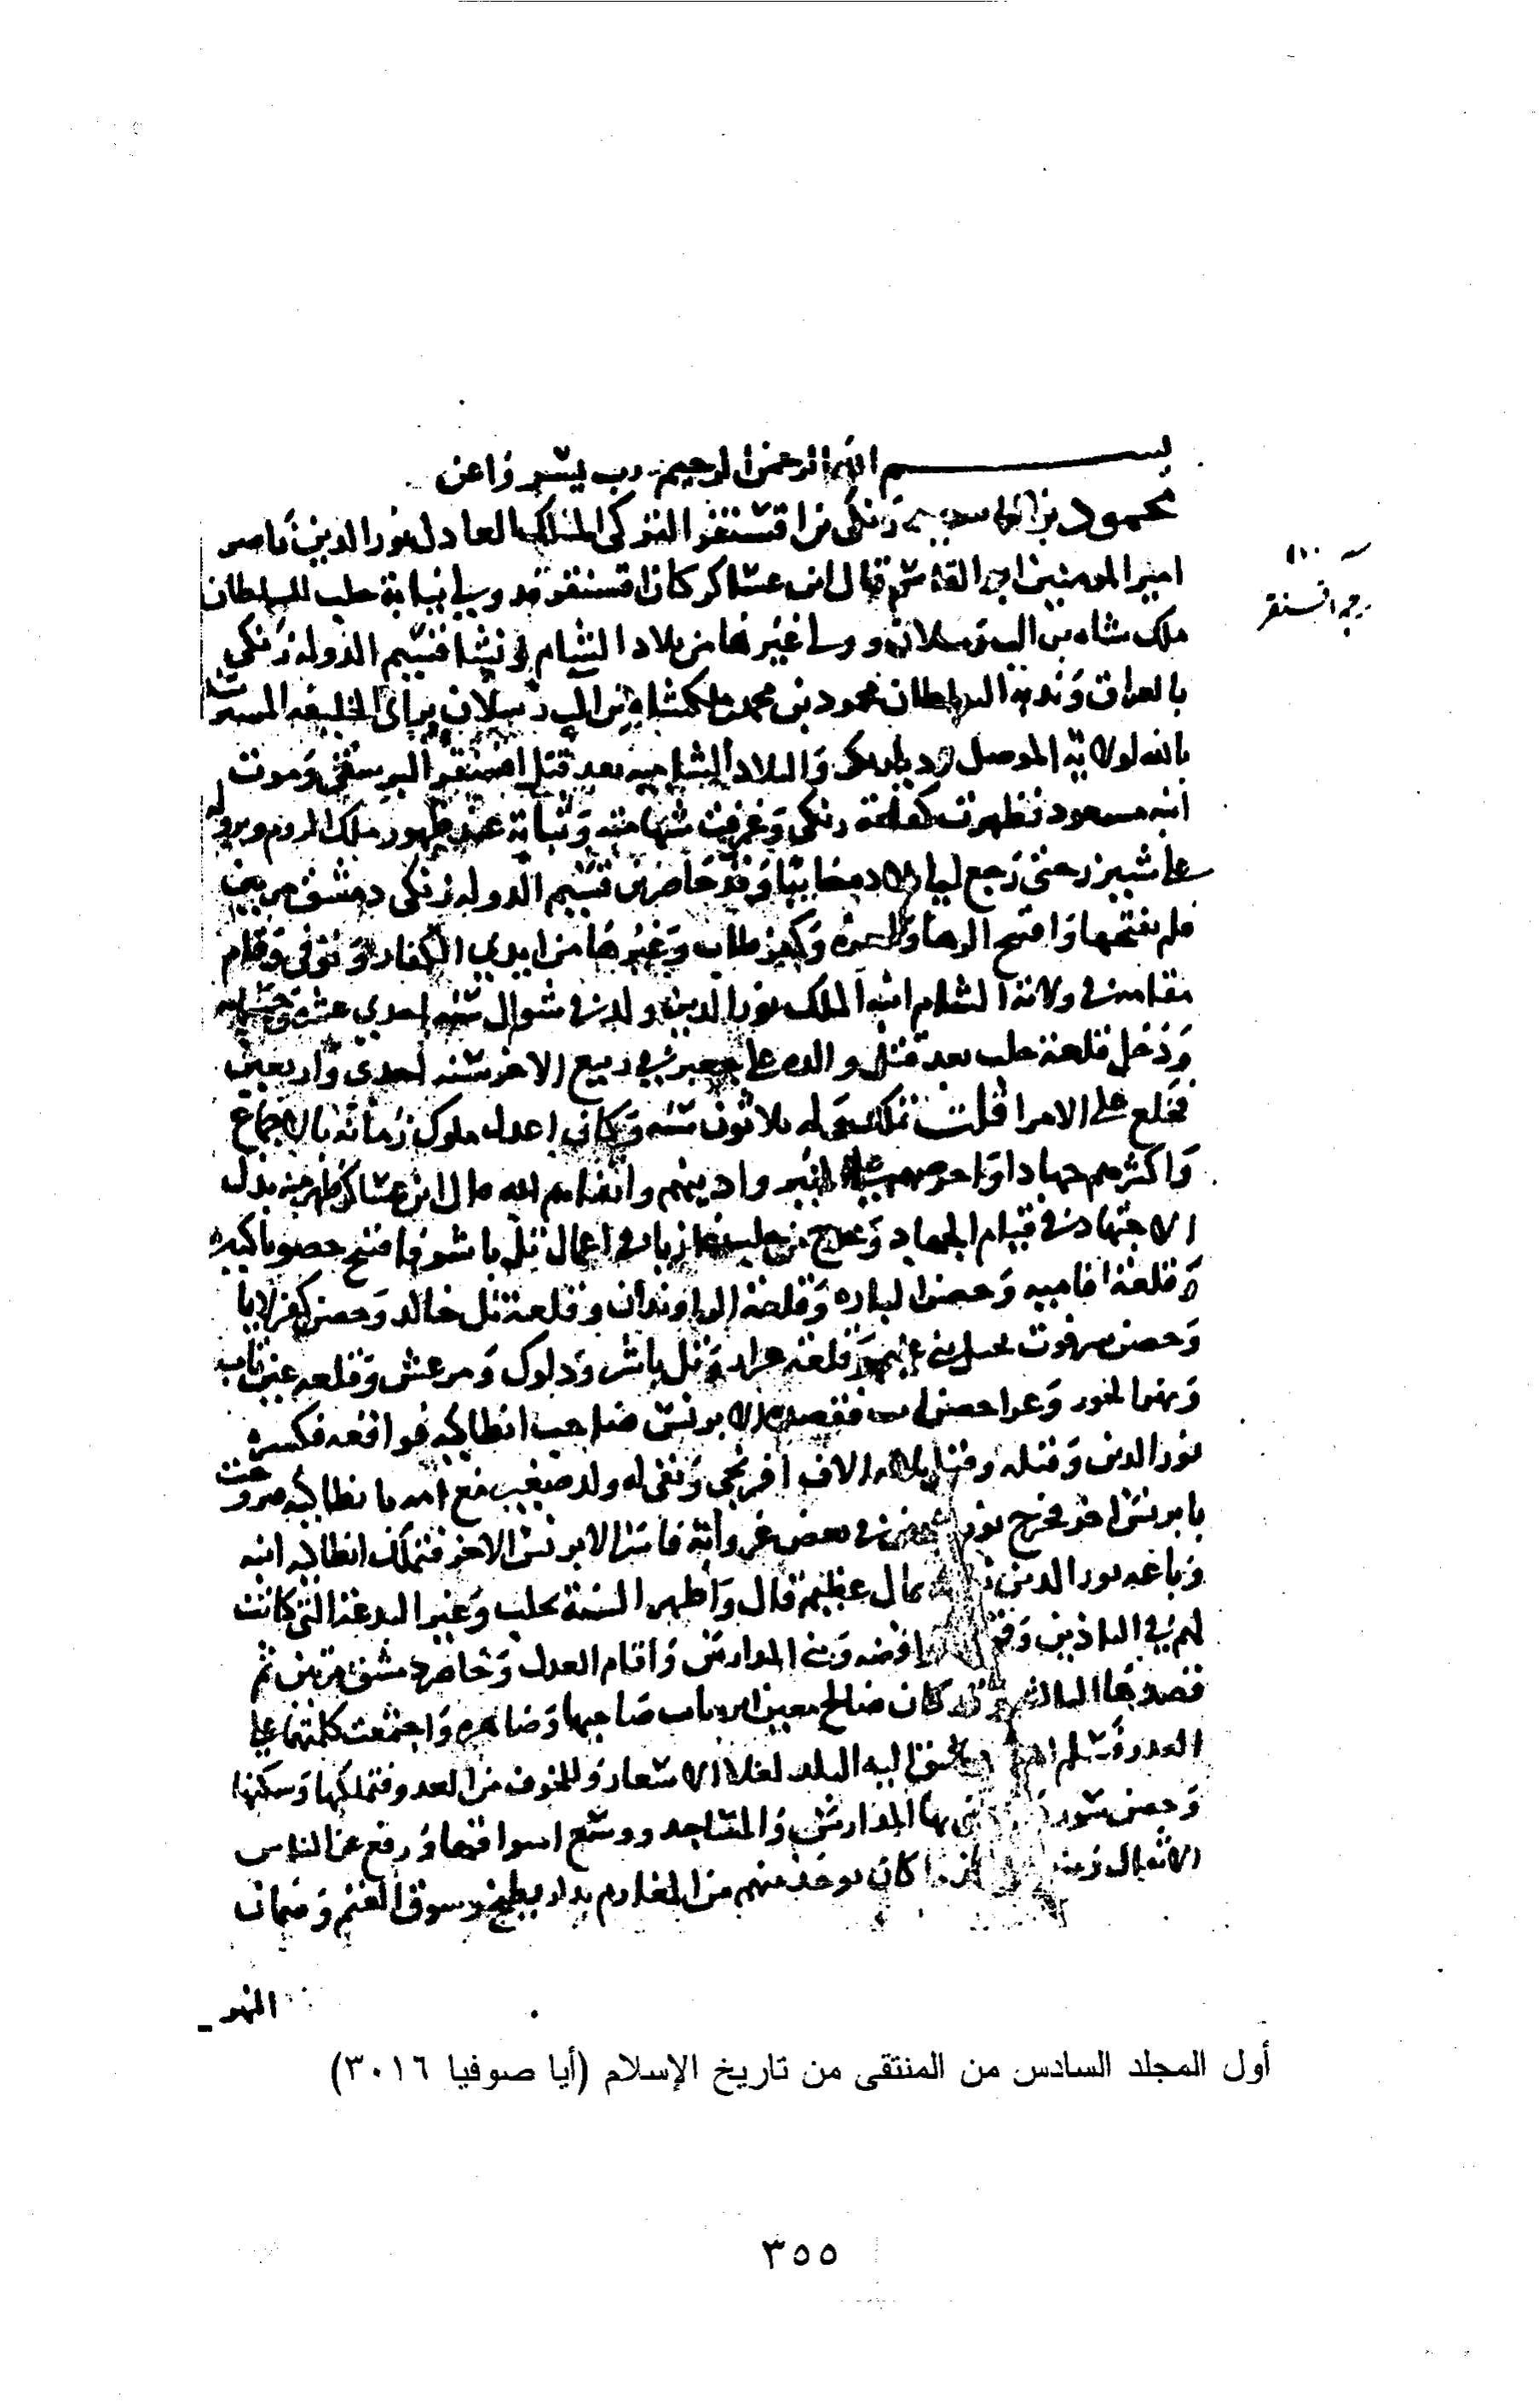 بسم الله الرحمن الرحيم رب يسر واعن
محمود بن زنكي بن اقسنقر التركي الملك العادل نور الدين ناصر
امير المومنين ابو القسم قال ابن عساكر كان اقسنقر قد ولي نيابة حلب للسلطان
ملك شاه بن الب رسلان وولي غيرها من بلاد الشام ونشا قسيم الدوله زنكي
بالعراق وندبه السلطان محمود بن محمد بن ملكشاه بن الب رسلان براي الخليفه المسترشد
بالله لولاية الموصل وديار بكر والبلاد الشاميه بعد قتل اقسنقر البرسقي وموت
ابنه مسعود فظهرت كفاية زنكي وعرفت شهامته وثباته عند ظهور ملك الروم ونزوله
على شيزر حتى رجع الى بلاده خايبا وقد حاصر قسيم الدوله زنكي دمشق مرتين
فلم يفتحها وافتتح الرها والمعره وكفرطاب وغيرها من ايدي الكفار وتوفي وقام
مقامه في ولاية الشام ابنه الملك نور الدين ولد في شوال سنه احدي عشره وخمسمايه
ودخل قلعة حلب بعد قتل والده على جعبر في ربيع الاخر سنه احدى واربعين
فخلع على الامرا قلت تملك وله ثلاثون سنه وكان اعدل ملوك زمانه بالاجماع
واكثرهم جهادا واحرصهم على الخير وادينهم واتقاهم لله قال ابن عساكر ظهر منه بذل
الاجتهاد في قيام الجهاد وخرج من حلب غازيا في اعمال تل باشر فافتتح حصونا كثيره
وقلعة افاميه وحصن الباره وقلعة الراوندان وقلعة تل خالد وحصن كفرلاثا
وحصن بسرفوت بجبل بني عليم وقلعه عزاز وتل باشر ودلوك ومرعش وقلعه عين تاب
ونهر الجوز وغزا حصن انب فقصده الابرنس صاحب انطاكيه فواقعه فكسره
نور الدين وقتله وقتل ثلاثه الاف افرنجي وبقى له ولد صغير مع امه بانطاكيه فتزوجت
بابرنس اخر فخرج نور الدين في بعض غزواته فاسر الابرنس الاخر فتملك انطاكيه ابنه
وباعه نور الدين نفسه بمال عظيم قال واظهر السنة بحلب وغير البدعة التي كانت
لهم في التاذين وقمع الرافضه وبنى المدارس واقام العدل وحاصر دمشق مرتين ثم
قصدها الثالثه وقد كان صالح معين الدين صاحبها وصاهره واجتمعت كلمتهما على
العدو فسلم اهلها اليه البلد لغلا الاسعار وللخوف من العدو فتملكها وسكنها
وحصن سورها وبنى بها المدارس والمساجد ووسع اسواقها ورفع عن الناس
الاثقال ومنع من اخذ ما كان يوخذ منهم من المغارم بدار بطيخ وسوق الغنم وضمان
النهر
ترجمه اقسنقر
أول المجلد السادس من المنتقى من تاريخ الإسلام (أيا صوفيا ٣٠١٦)
٣٥٥